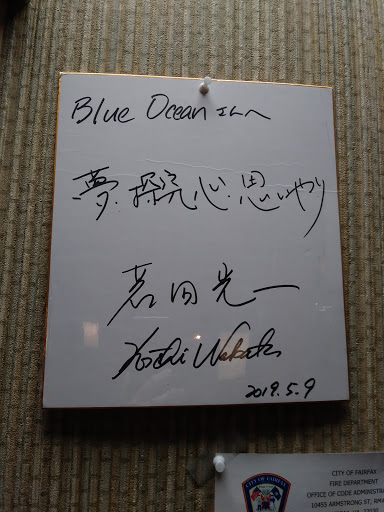 Blue Ocean さんへ
夢、探究心、思いやり
若田光一
Koichi Wakata
2019.5.9
CITY OF FAIRFAX
CITY OF FAIRFAX
FIRE DEPARTMENT
OFFICE OF CODE ADMINISTRA
10455 ARMSTRONG ST, RM